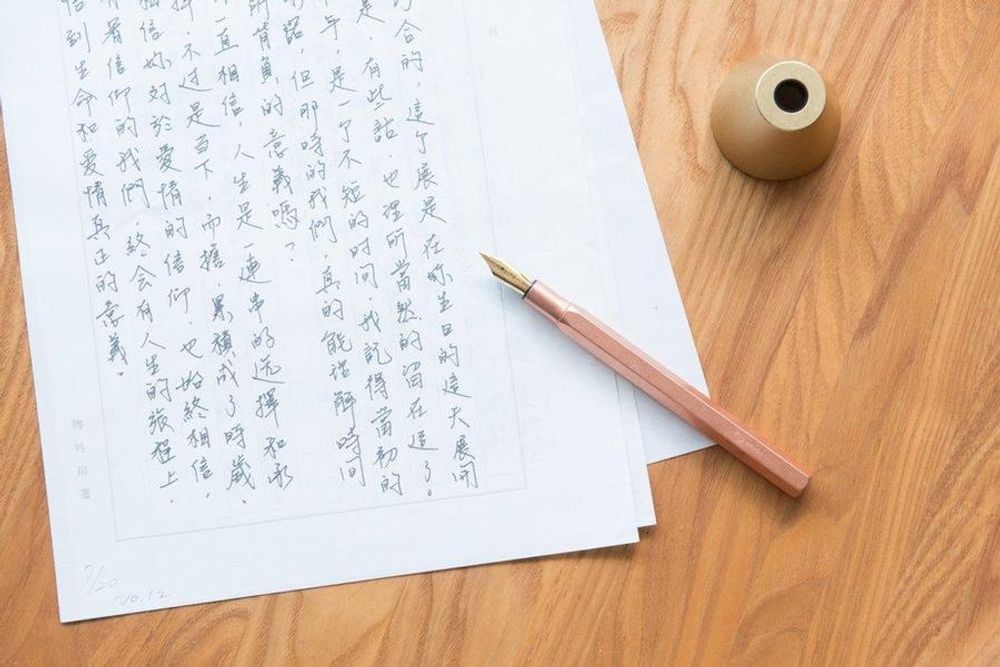 合的，這个展是在妳生日的這天展開
是，有些話，也理所當然的留在這了。
年，是一个不短的时间，我記得當初的
諾，但那時的我們，真的能理解時间
所背負的意義嗎？
一直相信，人生是一連串的选擇和承
擇，不过是当下，而擔，累積成了時歲、
相信妳对於愛情的信仰，也始終相信，
着信仰的我們，終会有人生的旅程上，
悟到生命和爱情真正的意義。
物外用箋
7/20
No.12.